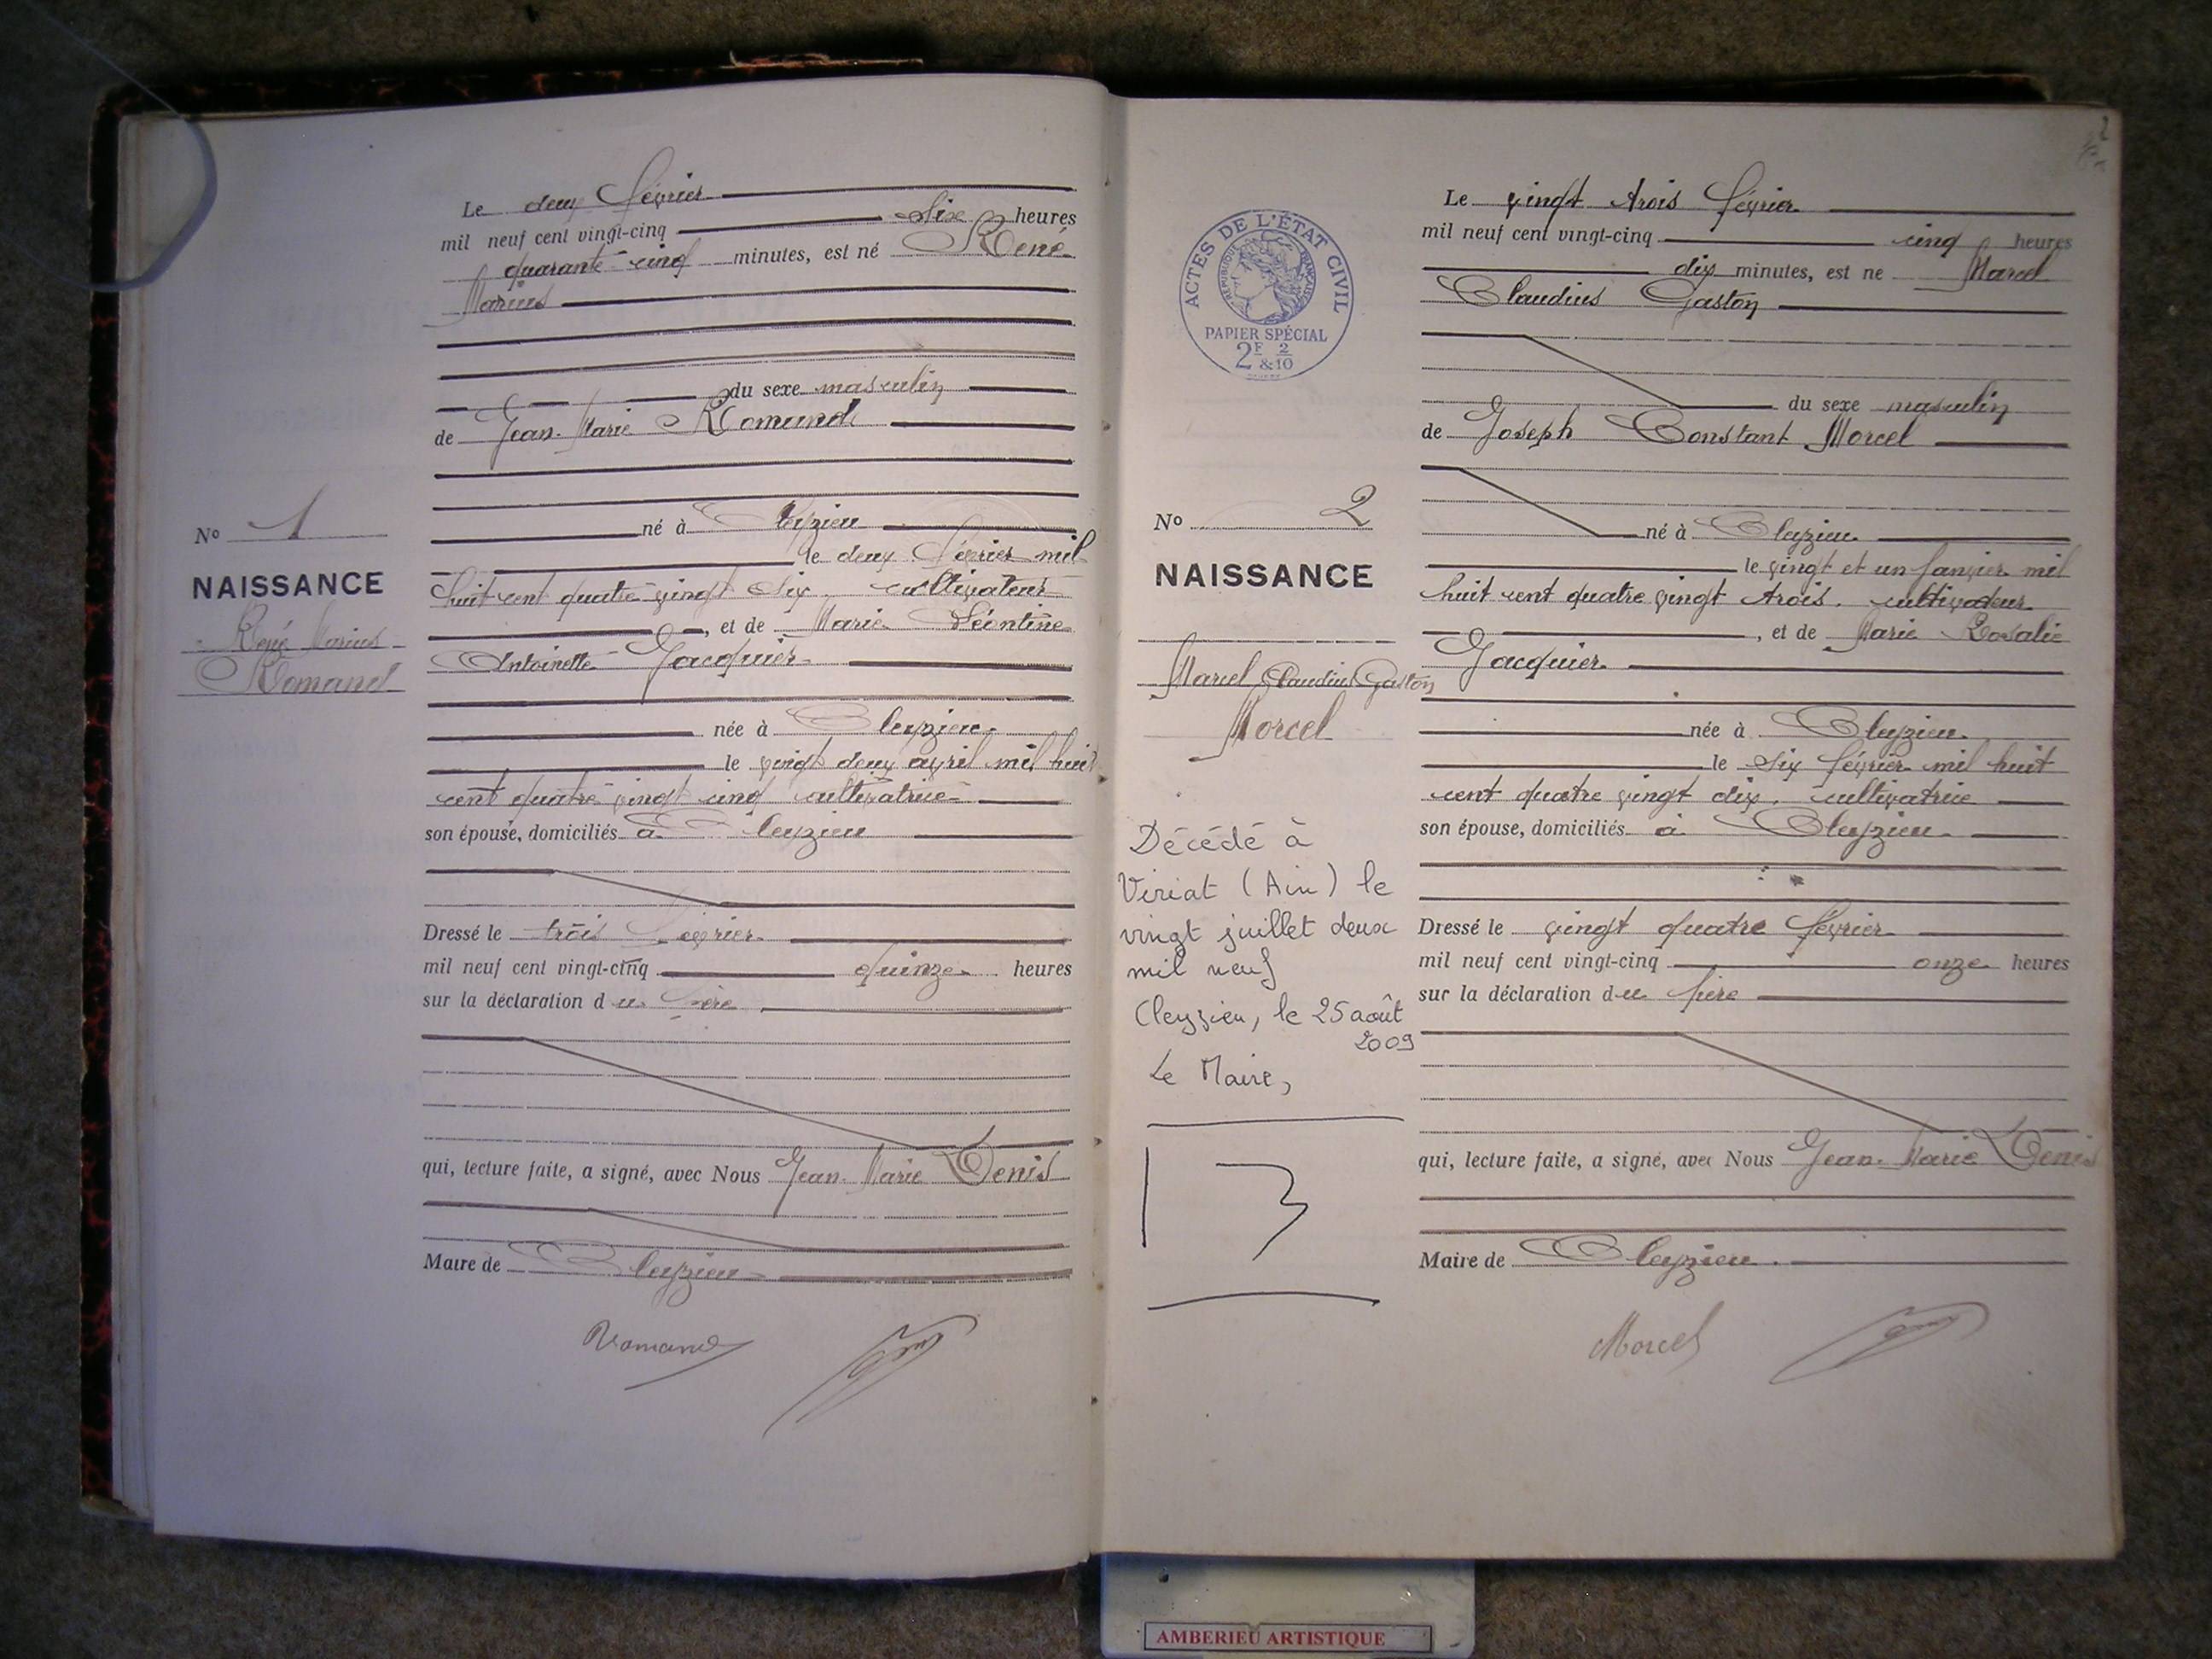 Le deux février
mil neuf cent vingt-cinq six heures
quarante cinq minutes, est né René
Marius
du sexe masculin
de Jean-Marie Romand
né à Cleyzieu
le deux février mil
huit cent quatre vingt six, cultivateur
, et de Marie Léontine
Antoinette Jacquier
née à Cleyzieu
le vingt deux avril mil huit
cent quatre vingt cinq cultivatrice
son épouse, domiciliés à Cleyzieu
Dressé le trois février
mil neuf cent vingt-cinq quinze heures
sur la déclaration du père
qui, lecture faite, a signé, avec Nous Jean-Marie Denis
Maire de Cleyzieu
Romand
No 1
NAISSANCE
René Marius
Romand
ACTES DE L'ÉTAT CIVIL
RÉPUBLIQUE FRANÇAISE
PAPIER SPÉCIAL
2F & 2/10
No 2
NAISSANCE
Marcel Claudius Gaston
Morcel
Décédé à
Viriat (Ain) le
vingt juillet deux
mil neuf
Cleyzieu, le 25 août
2009
Le Maire,
2
Le vingt trois février
mil neuf cent vingt-cinq cinq heures
dix minutes, est né Marcel
Claudius Gaston
du sexe masculin
de Joseph Constant Morcel
né à Cleyzieu
le vingt et un janvier mil
huit cent quatre vingt trois, cultivateur
, et de Marie Rosalie
Jacquier
née à Cleyzieu
le six février mil huit
cent quatre vingt dix, cultivatrice
son épouse, domiciliés à Cleyzieu
Dressé le vingt quatre février
mil neuf cent vingt-cinq onze heures
sur la déclaration du père
qui, lecture faite, a signé, avec Nous Jean-Marie Denis
Maire de Cleyzieu.
Morcel
AMBERIEU ARTISTIQUE